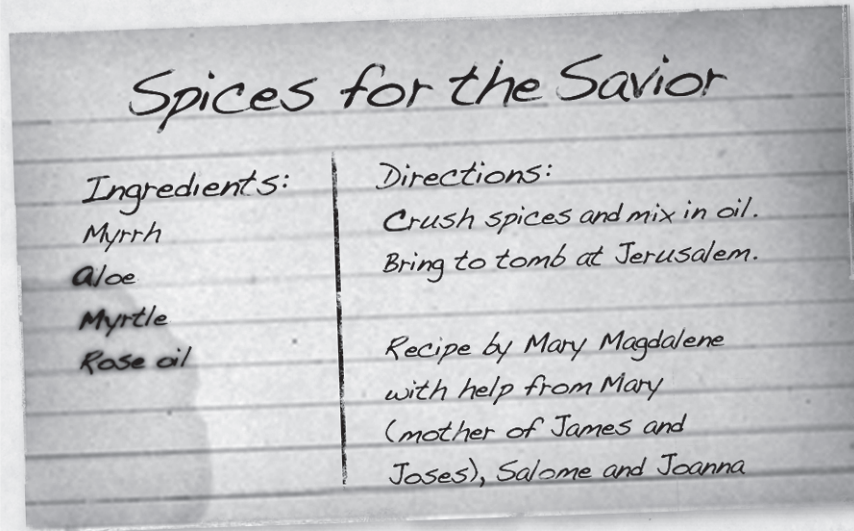 Spices for the Savior
Ingredients:
Myrrh
Aloe
Myrtle
Rose oil
Directions:
Crush spices and mix in oil.
Bring to tomb at Jerusalem.
Recipe by Mary Magdalene
with help from Mary
(mother of James and
Joses), Salome and Joanna